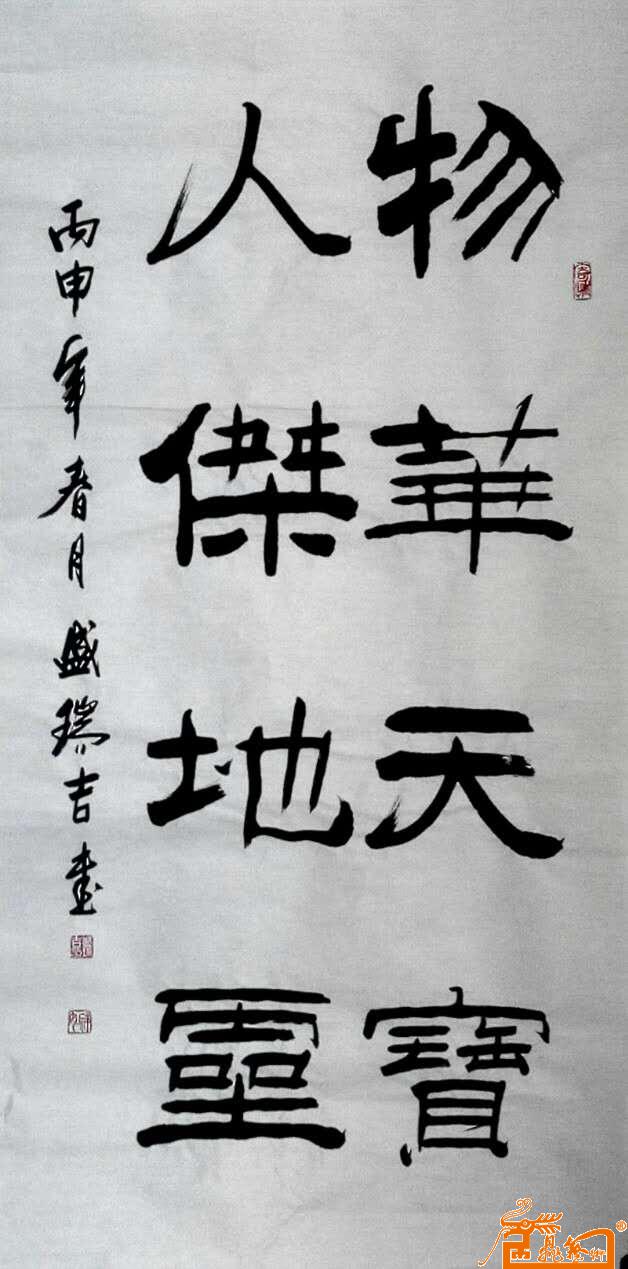 物華天寶
人傑地靈
丙申年春月盛瑞吉書